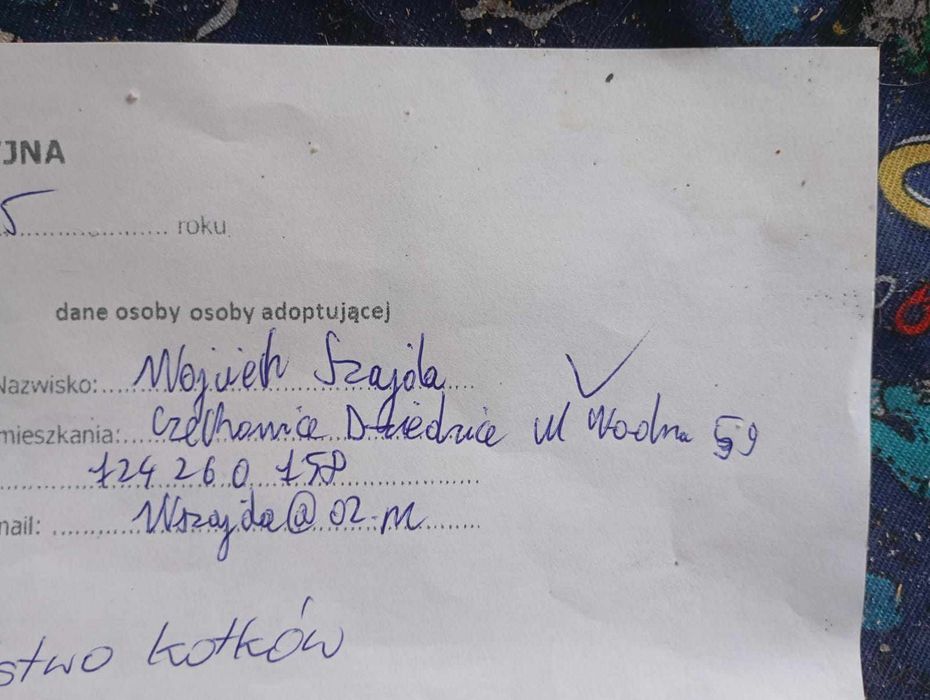 JNA
5 roku
dane osoby osoby adoptującej
Nazwisko: Wojciech Szajda
mieszkania: Czechowice Dziedzice ul Wodna 59
724 260 158
mail: Wszajda@o2.pl
stwo kotków